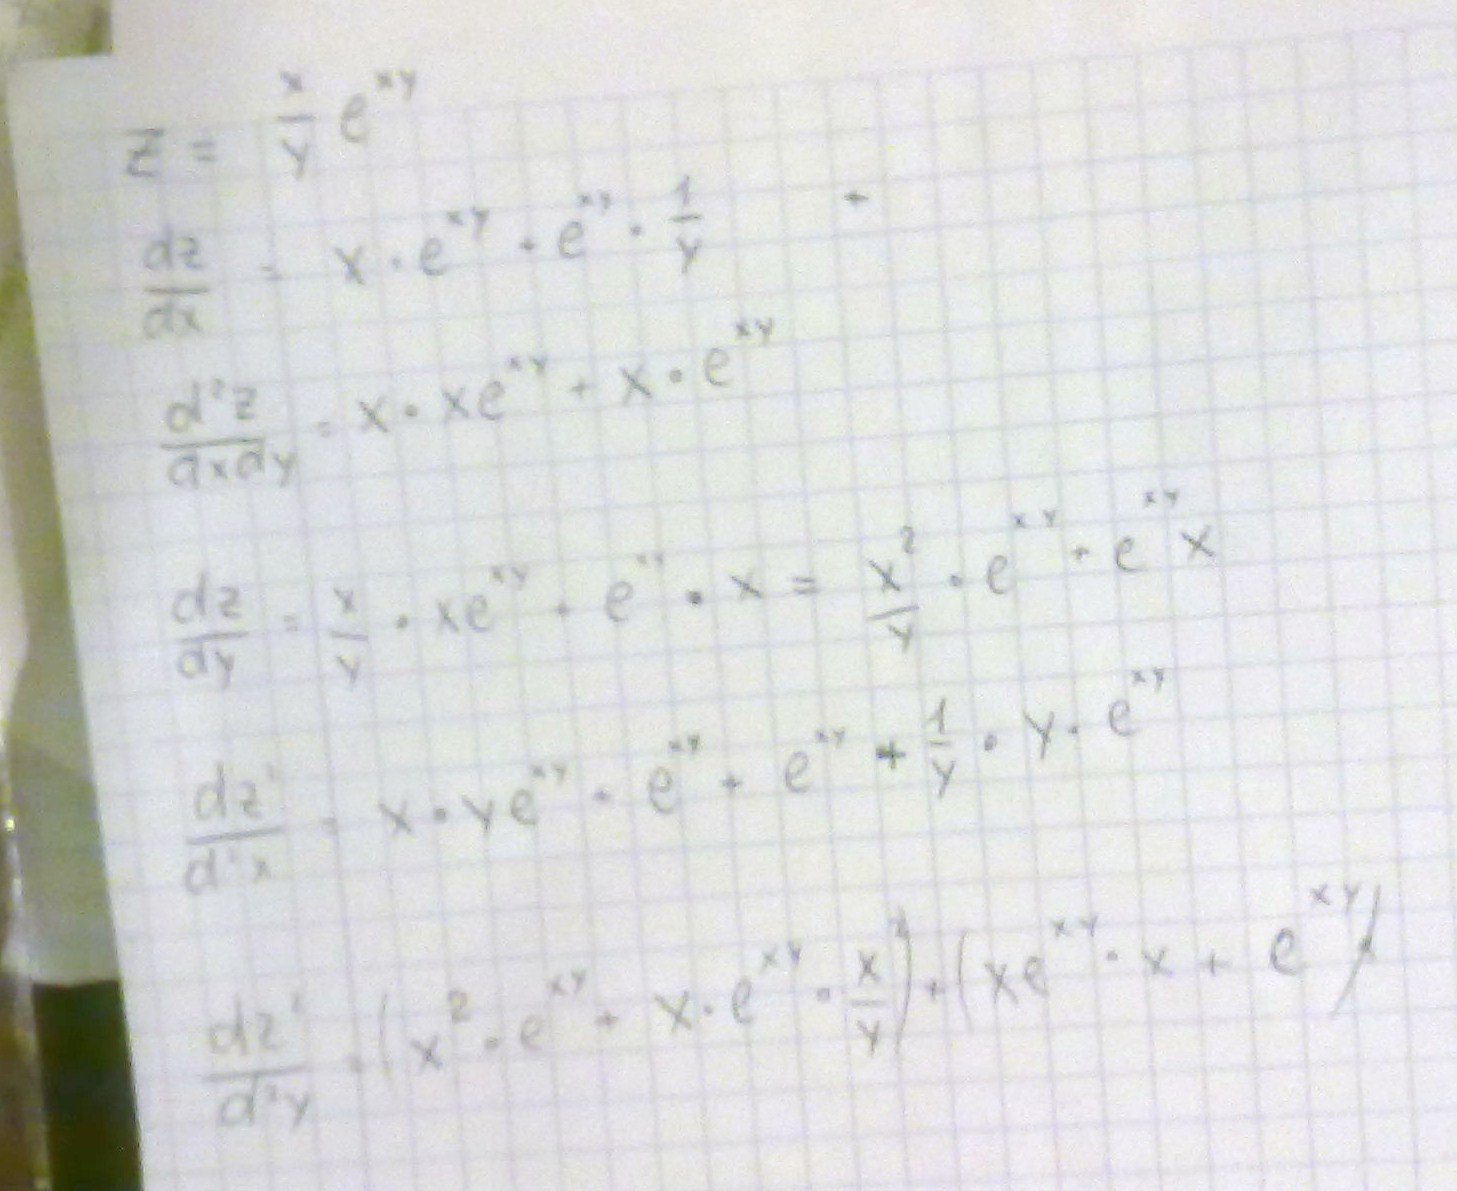 z = x/y e^xy
dz/dx = x · e^xy + e^xy · 1/y +
d²z/dxdy = x · xe^xy + x · e^xy
dz/dy = x/y · xe^xy + e^xy · x = x²/y · e^xy + e^xy x
dz²/d²x = x · ye^xy + e^xy + e^xy + 1/y · y · e^xy
dz²/d²y = (x² · e^xy + x · e^xy · x²/y) + (xe^xy · x + e^xy)